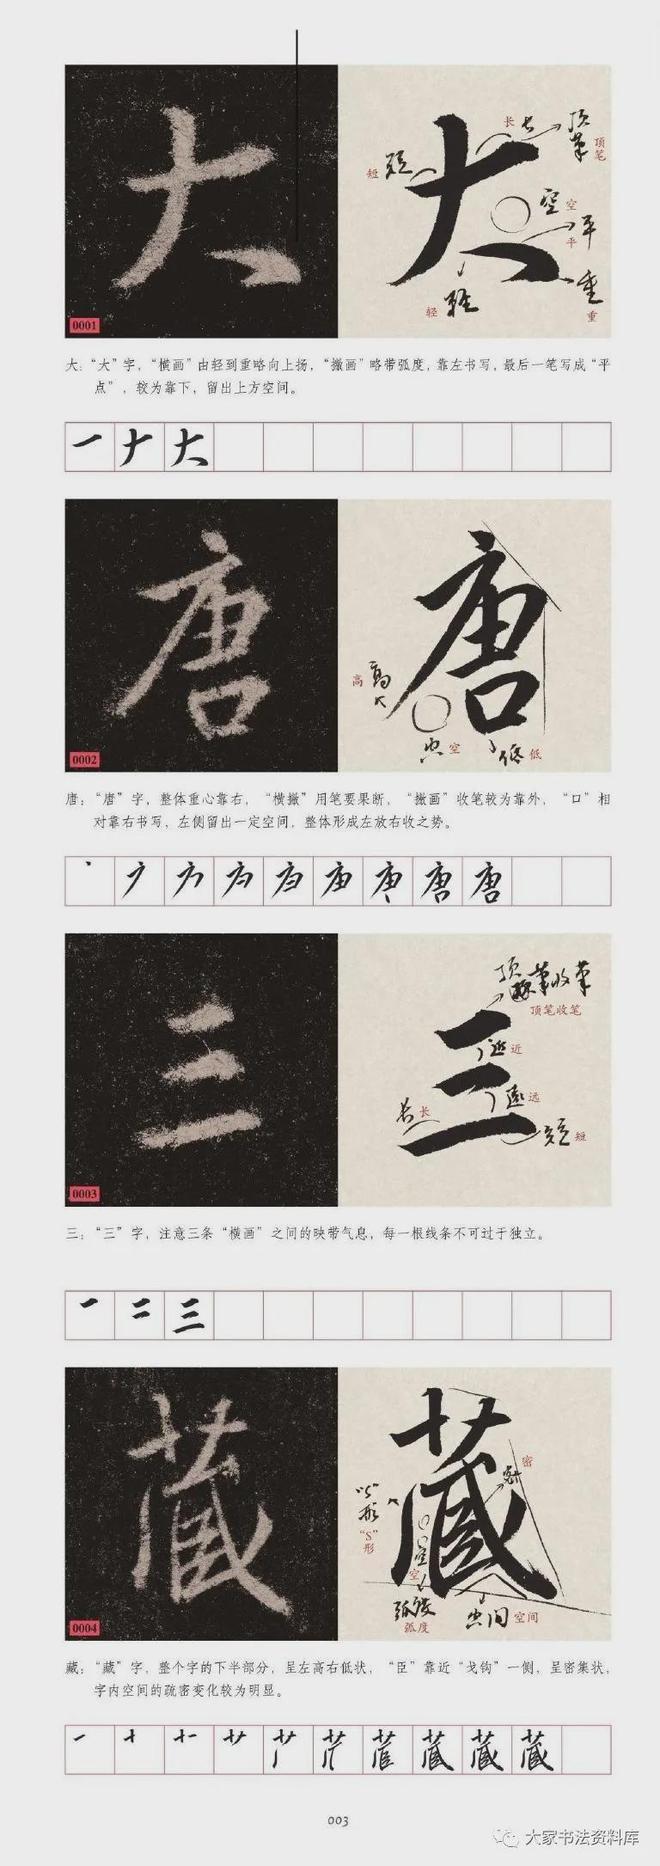 大
大
长 长
顶笔
顶笔
短 短
空 空
平
平
轻 轻
重
重
0001
大：“大”字，“横画”由轻到重略向上扬，“撇画”略带弧度，靠左书写，最后一笔写成“平
点”，较为靠下，留出上方空间。
大
唐
唐
高 高
空 空
低 低
0002
唐：“唐”字，整体重心靠右，“横撇”用笔要果断，“撇画”收笔较为靠外，“口”相
对靠右书写，左侧留出一定空间，整体形成左放右收之势。
唐 唐
三
三
顶笔收笔
近 近
远 远
长 长
短 短
0003
三：“三”字，注意三条“横画”之间的映带气息，每一根线条不可过于独立。
一 二 三
藏
藏
密
“S”形
“S”
形
空
空
弧度
弧度
空间 空间
0004
藏：“藏”字，整个字的下半部分，呈左高右低状，“臣”靠近“戈钩”一侧，呈密集状，
字内空间的疏密变化较为明显。
藏
003
大家书法资料库